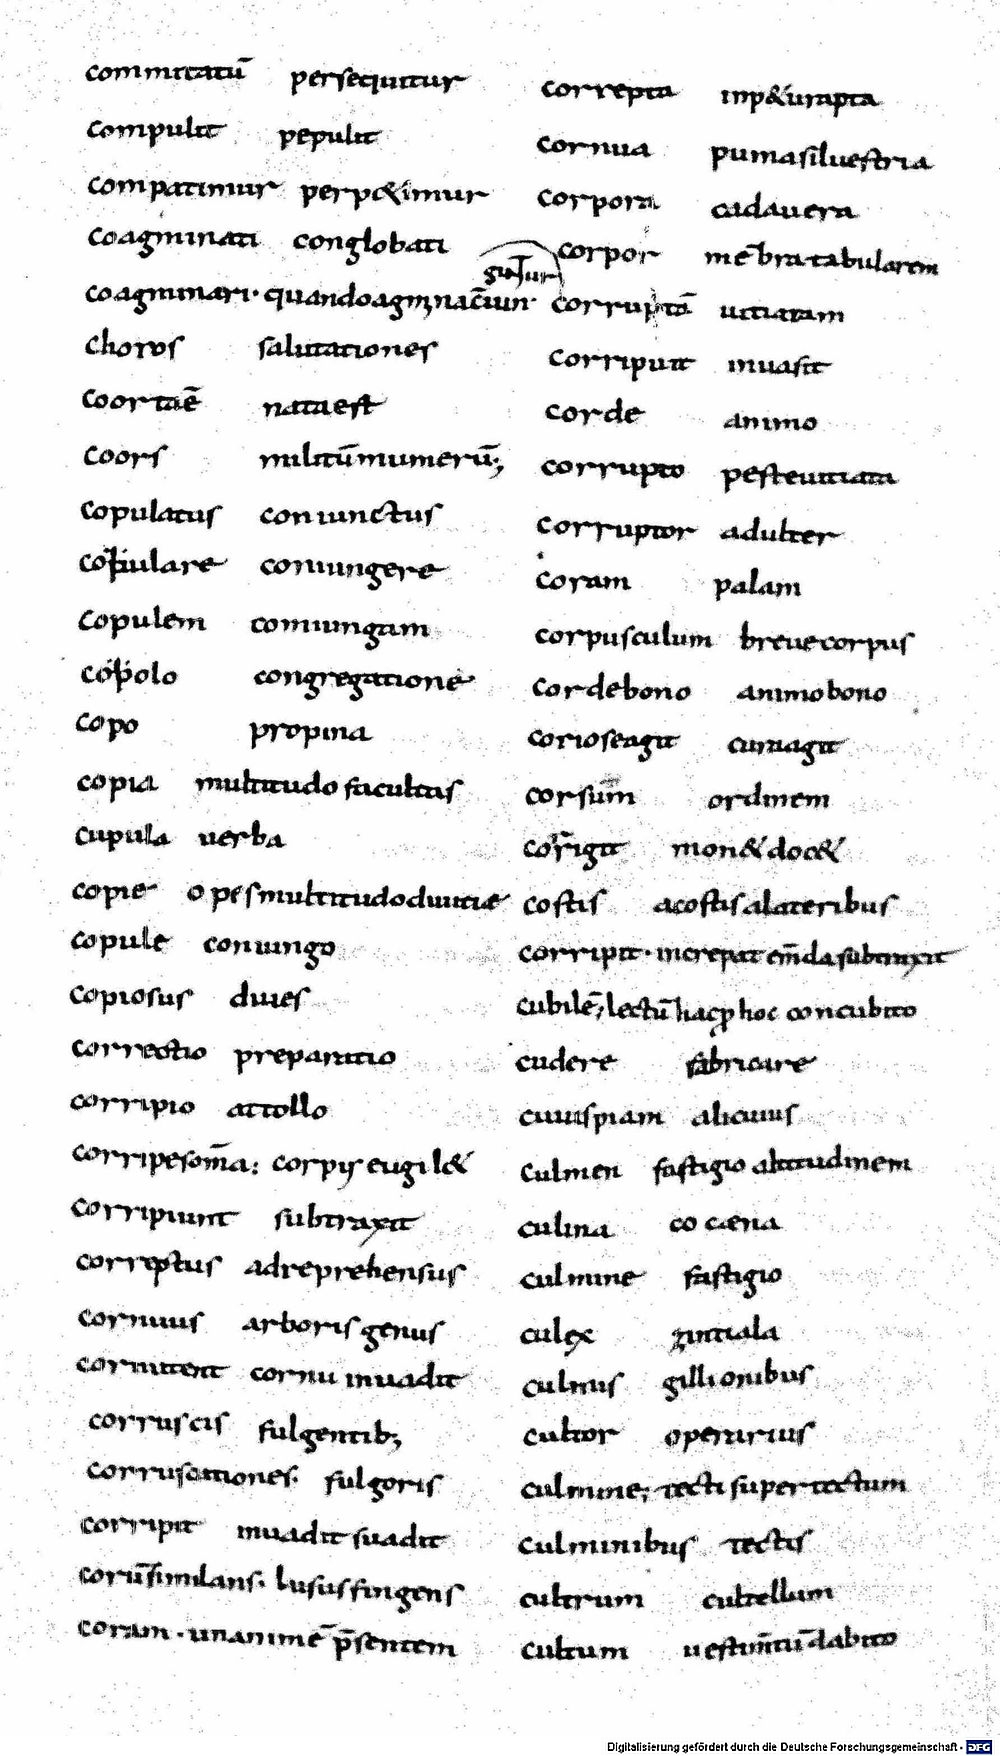 commitatū persequitur
compulit pepulit
compatimur perp&imur
coagminati conglobati
coagminari· quando agmina cōiun
giutur
choros salutationes
coortaē nata est
coors militū numerū;
copulatus coniunctus
copulare coniungere
copulem coniungam
copolo congregatione
copo propina
copia multitudo facultas
cupula uerba
copie opes multitudo diuitiae
copule coniungo
copiosus diues
correctio preparatio
corripio attollo
corripe som̄a: corpus eugil&
corripiunt subtraxit
correptus adreprehensus
cornuus arboris genus
cornitent cornu inuadit
corruscis fulgentib;
corruscationes· fulgoris
corripit inuadit suadit
corūsimilans· lusus fingens
coram· unanimē p̄sentem
correpta inp&u rapta
cornua puma siluestria
corpora cadauera
corpor mēbra tabularem
corruptā uitiatam
corripuit inuasit
corde animo
corrupto peste uitiata
corruptor adulter
coram palam
corpusculum breue corpus
corde bono animo bono
coriose agit cura agit
corsum ordinem
corrigit mon& doc&
costis a costis a lateribus
corripit· increpat em̄da subtinxit
cubilē; lectū hac p hoc concubito
cudere fabricare
cuiuspiam alicuius
culmen fastigio altitudinem
culina cocaena
culmine fastigio
culex zintiala
culmus gillionibus
cultor operarius
culmine; tecti super tectum
culminibus tectis
cultrum cultellum
cultum uestim̄tū ł abito
Digitalisierung gefördert durch die Deutsche Forschungsgemeinschaft - DFG